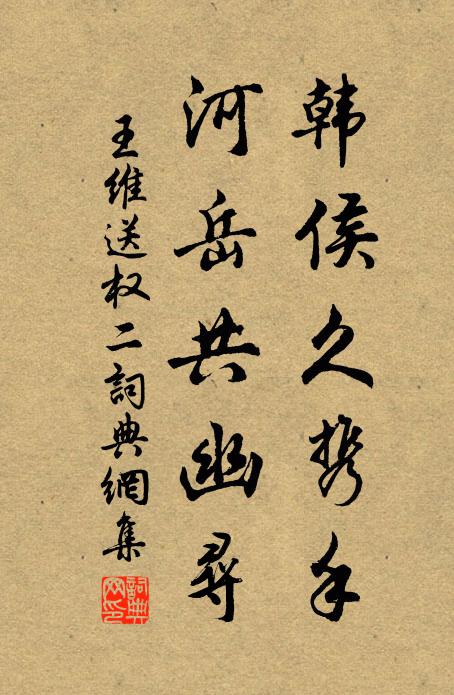 韩侯久携手
河岳共幽尋
王维送权二詞典網集
詞典网印